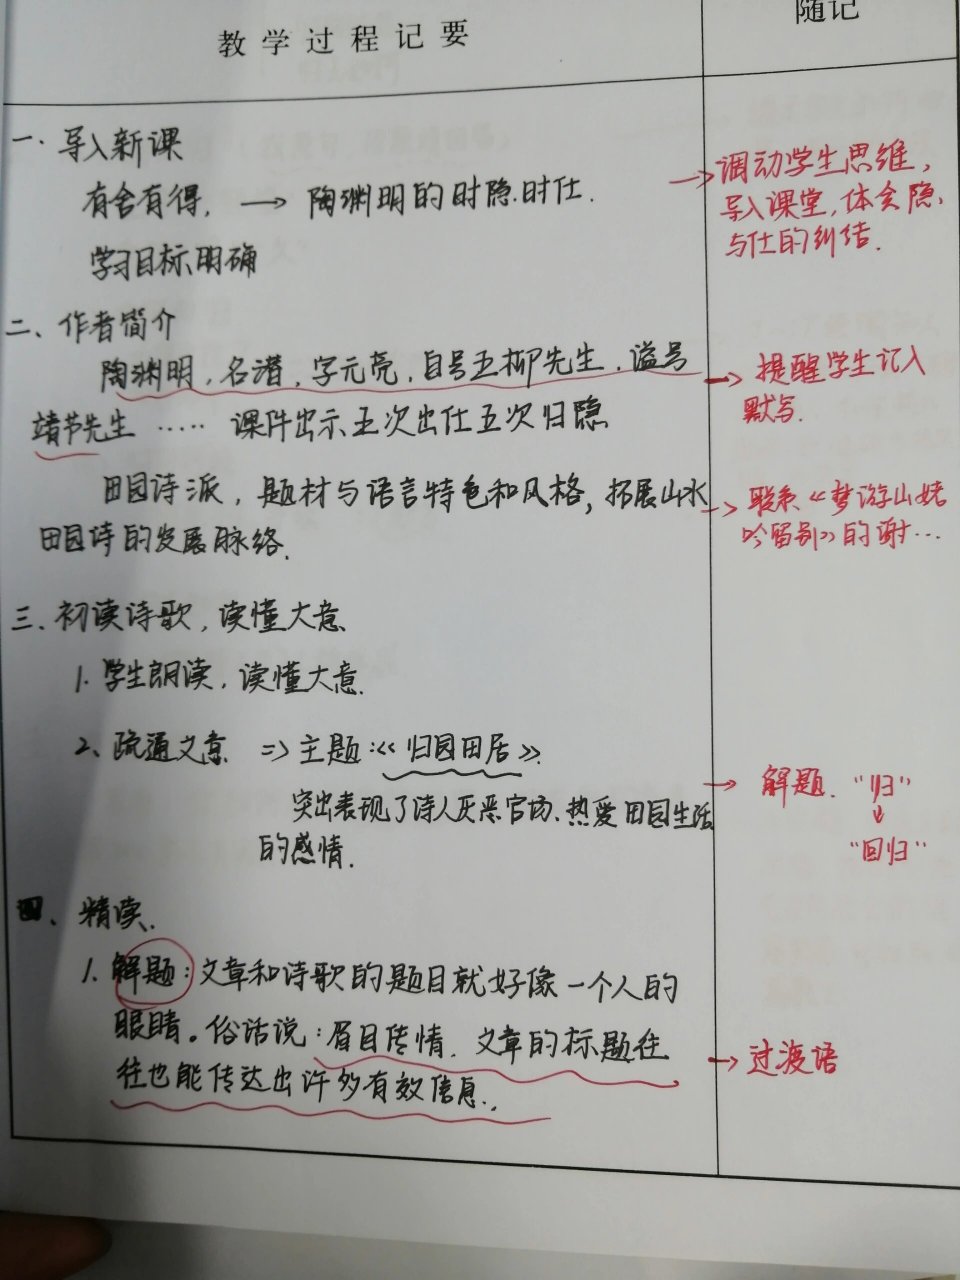 教学过程记要
随记
一、导入新课
有舍有得, → 陶渊明的时隐时仕.
学习目标明确
→调动学生思维,
导入课堂,体会隐
与仕的纠结.
二、作者简介
陶渊明,名潜,字元亮,自号五柳先生,谥号
靖节先生 ····· 课件出示五次出仕五次归隐
→ 提醒学生记入
默写.
田园诗派,题材与语言特色和风格,拓展山水
田园诗的发展脉络.
→ 联系《梦游山姥
吟留别》的谢…
三、初读诗歌,读懂大意
1. 学生朗读,读懂大意.
2、疏通文章 => 主题:《归园田居》.
突出表现了诗人厌恶官场、热爱田园生活
的感情.
→ 解题. “归”
↓
“回归”
四、精读.
1. 解题:文章和诗歌的题目就好像一个人的
眼睛。俗话说:眉目传情.文章的标题往
往也能传达出许多有效信息.
→ 过渡语